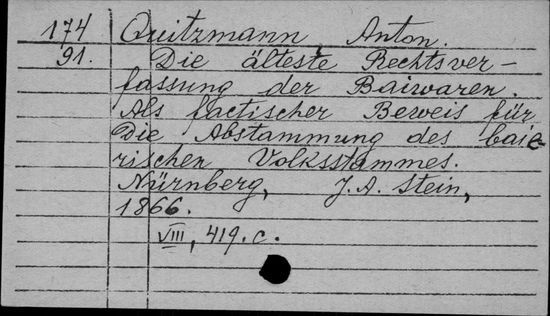 174 Quitzmann, Anton.
91. Die älteste Rechtsver-
fassung der Baiwaren.
Als factischer Beweis für
Die Abstammung des baie-
rischen Volksstammes.
Nürnberg, J.A. Stein,
1866.
VIII, 419. c.